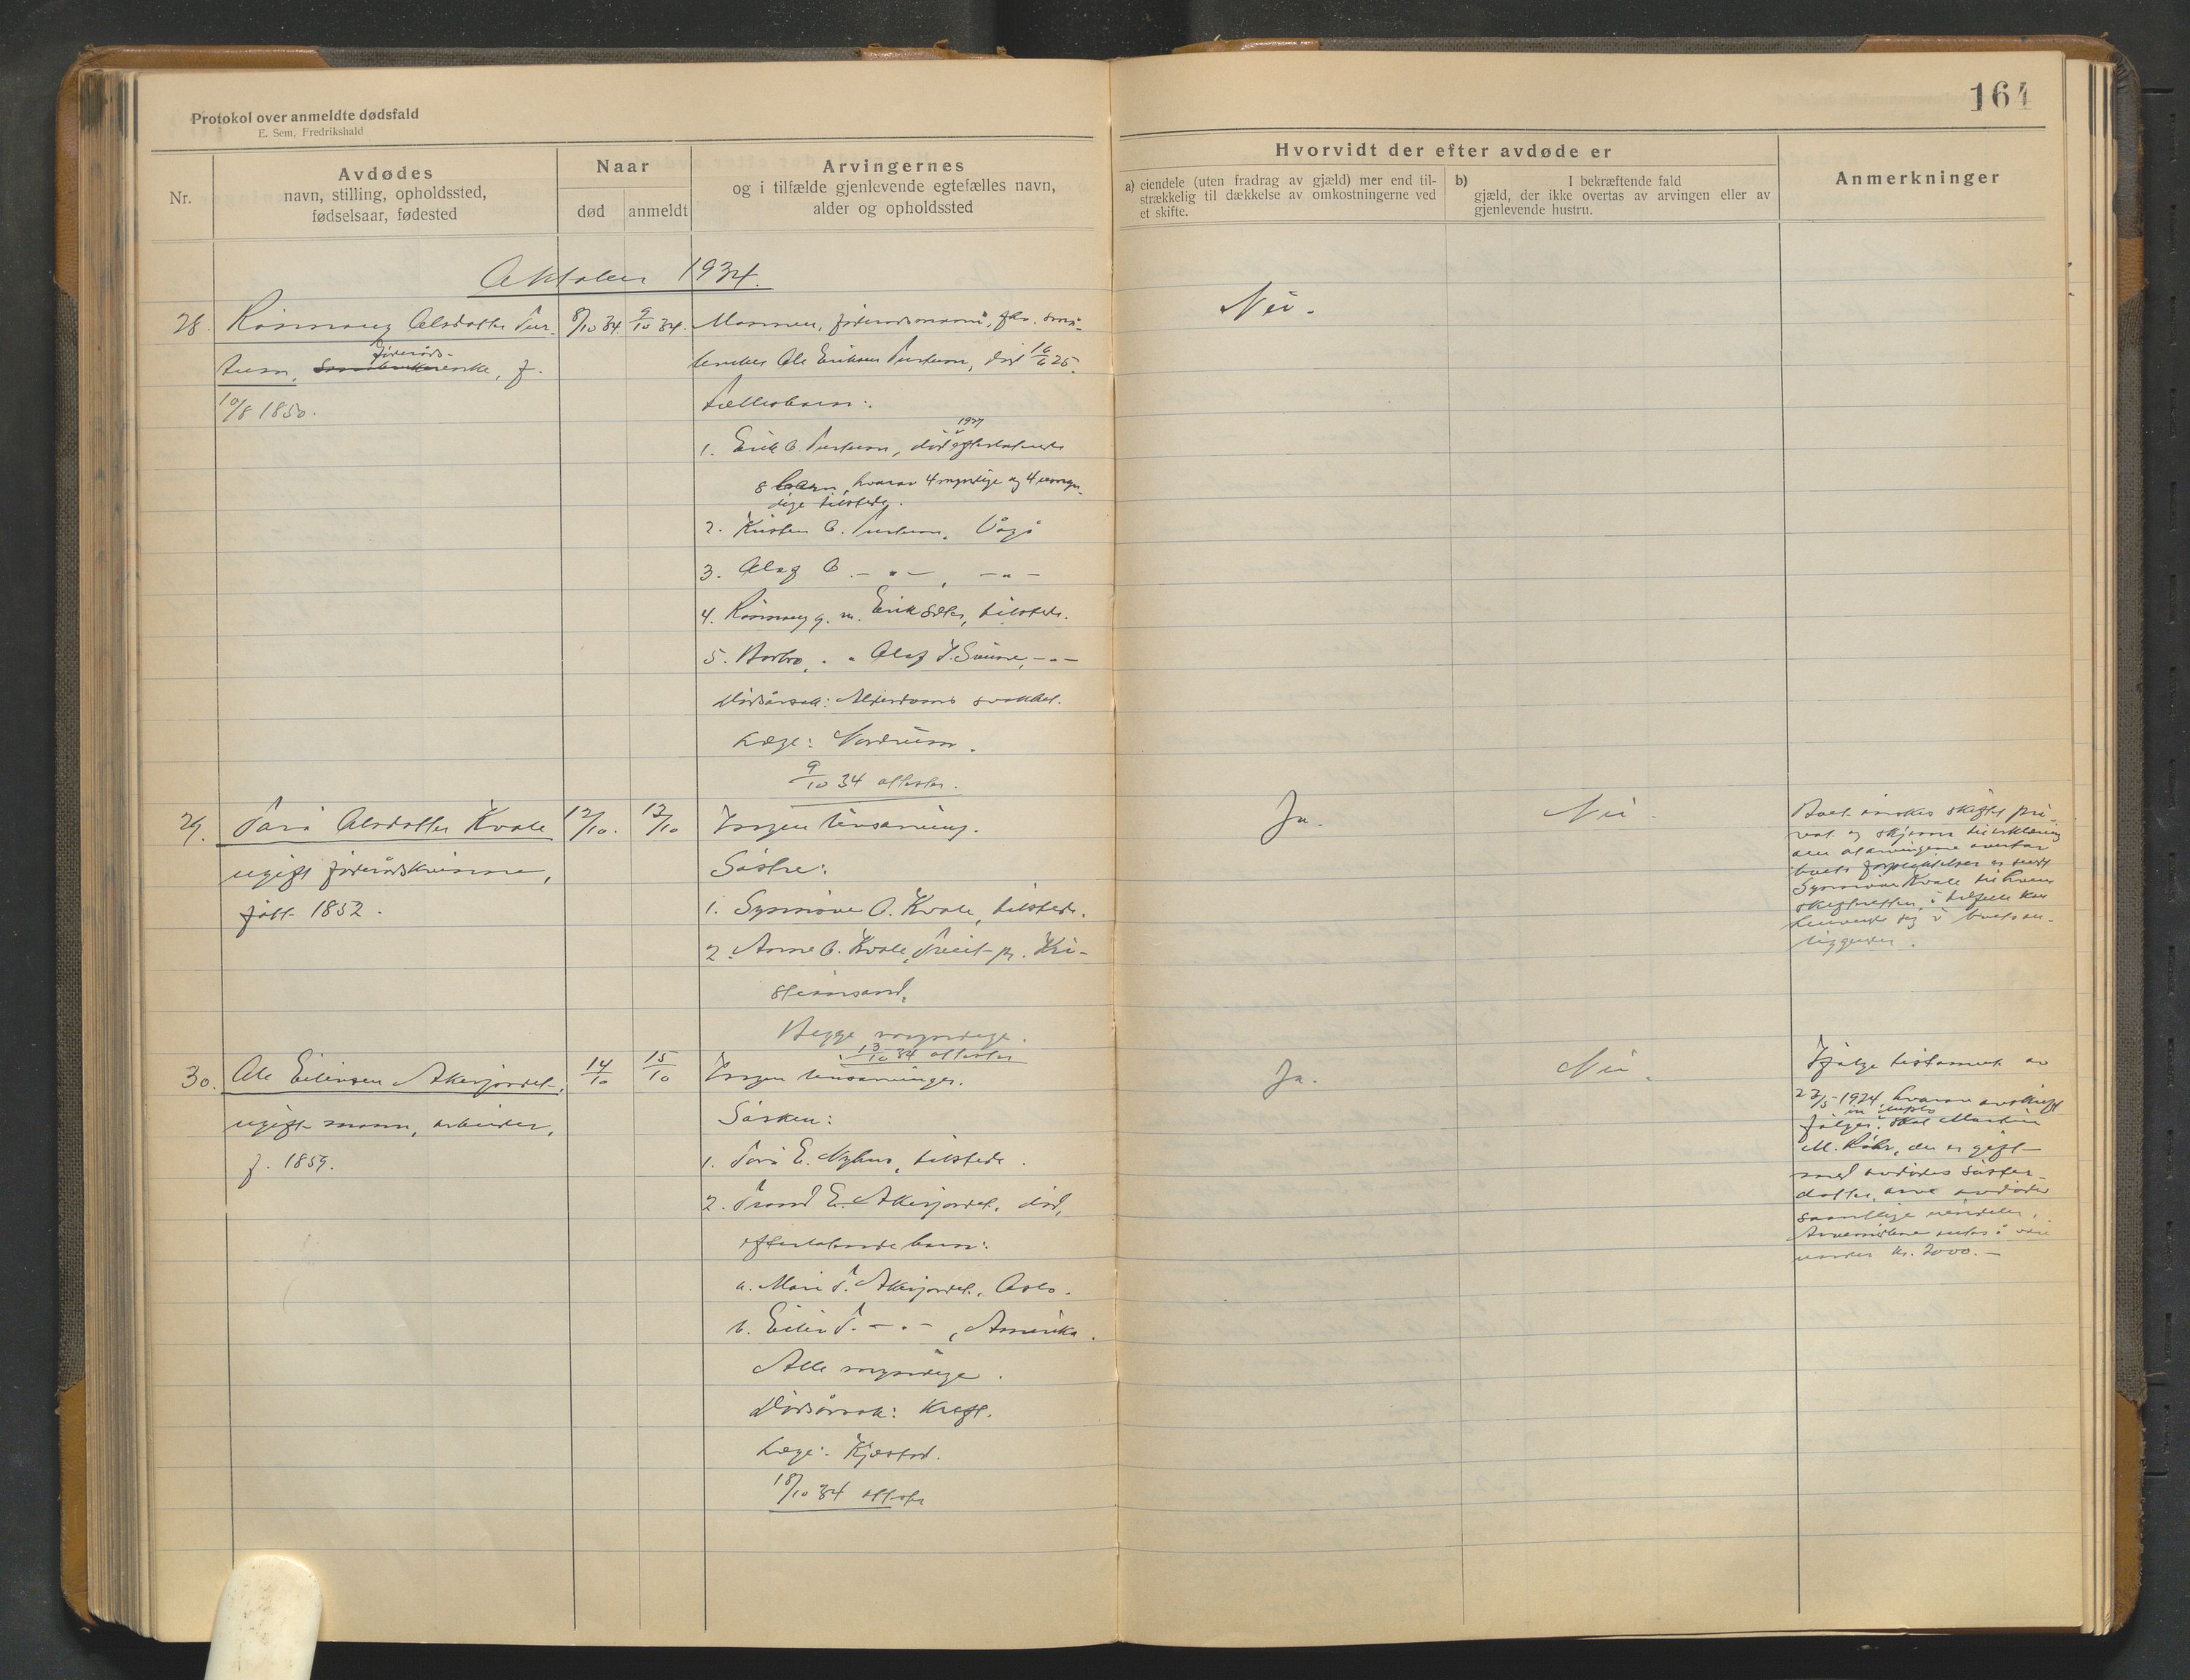 Protokol over anmeldte dødsfald
E. Sem, Fredrikshald
164
Nr.
Avdødes
navn, stilling, opholdssted,
fødselsaar, fødested
Naar
død
anmeldt
Arvingernes
og i tilfælde gjenlevende egtefælles navn,
alder og opholdssted
Hvorvidt der efter avdøde er
a) eiendele (uten fradrag av gjæld) mer end til-
strækkelig til dækkelse av omkostningerne ved
et skifte.
b) I bekræftende fald
gjæld, der ikke overtas av arvingen eller av
gjenlevende hustru.
Anmerkninger
Oktober 1934.
28. Rönnaug Olsdatter
föderåds-
enke, f.
10/8 1850.
8/10 34. 9/10 34.
Mannen, föderådsmann, fhv. små-
bruker Ole Eriksen, död 16/6 25.
Fellesbarn:
1927
1. Erik O., död efterlatende
8 barn, hvorav 4 myndige og 4 umyn-
dige tilstede.
2. Kristen O., Vågå
3. Olaf O. -"-, -"-
4. Rönnaug g. m. Erik, tilstede.
5. Barbro, " " Olaf, -"-
Dödsårsak: Alderdoms svakhet.
Læge: Nordrum.
9/10 34 attester.
Nei.
29. Olsdatter Kvale
ugift föderådskvinne,
født 1852.
12/10. 13/10
Ingen livsarving.
Söstre:
1. Synnöve O. Kvale, tilstede.
2. Anne O. Kvale, pr. Kri-
stiansand,
Begge myndige.
13/10 34 attester
Ja.
Nei.
Boet önskes skiftet pri-
vat og til erklæring
om at arvingene overtar
boets forpliktelser er
Synnöve Kvale til hvem
skifteretten i tilfelle kan
henvende sig i boets an-
liggender.
30. Ole Eilivsen Akerjordet,
ugift mann, arbeider,
f. 1859.
14/10 15/10
Ingen livsarvinger.
Sösken:
1. E. Nyhus, tilstede.
2. Trond E. Akerjordet, död,
efterlatende barn:
a. Mari T. Akerjordet, Oslo.
b. Eiliv T. -"-, Amerika.
Alle myndige.
Dödsårsak: Kreft.
Læge: Kjæstad.
18/10 34 attester
Ja.
Nei.
Ifølge testament av
23/5-1924, hvorav avskrift
in duplo
fölger, skal Martin
M., der er gift
med avdödes söster-
datter, arve avdödes
samtlige eiendeler.
Arvemidlene antas å være
under kr. 2000.-